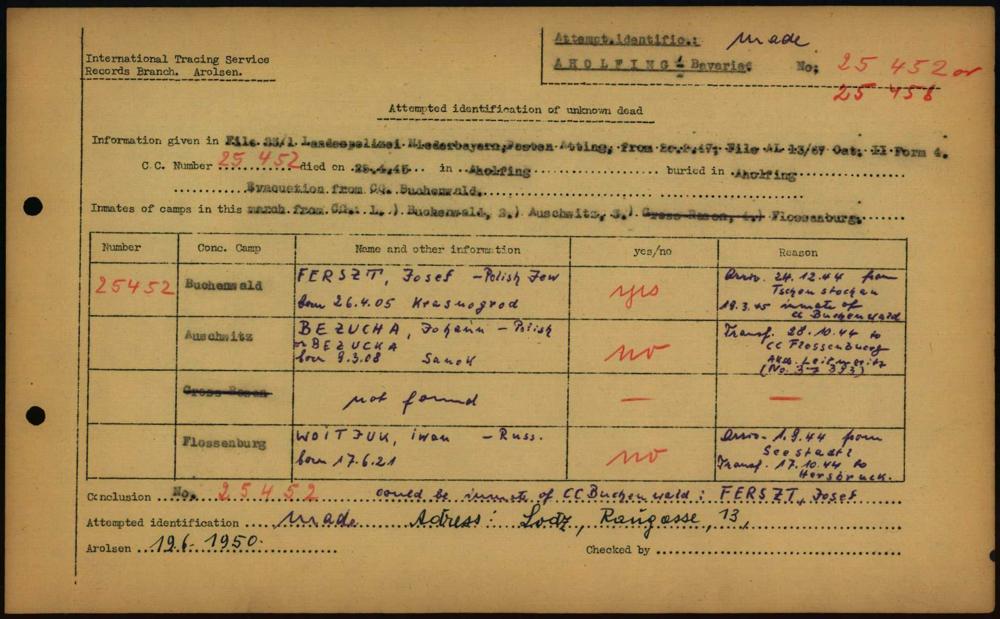 International Tracing Service
Records Branch. Arolsen.
Attempt.identific.: made
AHOLFING - Bavaria: No: 25 452 or
25 456
Attempted identification of unknown dead
Information given in File 23/1 Landespolizei Niederbayern, Posten Atting, from 47, File AL 13/67 Oct. II Form 4.
C.C. Number 25 452 died on 25.4.45 in Aholfing buried in Aholfing
Evacuation from CC. Buchenwald.
Inmates of camps in this march from CC.: 1.) Buchenwald, 2.) Auschwitz, 3.) Gross-Rosen, 4.) Flossenburg.
Number Conc. Camp Name and other information yes/no Reason
25452 Buchenwald FERSZT, Josef - Polish Jew
born 26.4.05 Krasnogrod yes Arriv. 24.12.44 from
Tschenstochau
19.3.45 inmate of
CC Buchenwald
Auschwitz BEZUCHA, Johann - Polish
or BEZUCKA
born 9.3.08 Sanok no Transf. 28.10.44 to
CC Flossenbuerg
Akdo. Leitmeritz
(No. 37 393)
Gross-Rosen not found — —
Flossenburg WOITJUK, iwan - Russ.
born 17.6.21 no Arriv. 1.9.44 from
Seestadtl
Transf. 17.10.44 to
Hersbruck.
Conclusion No. 25452 could be inmate of CC Buchenwald: FERSZT, Josef
Attempted identification made Adress: Lodz, 13,
Arolsen 19.6.1950. Checked by